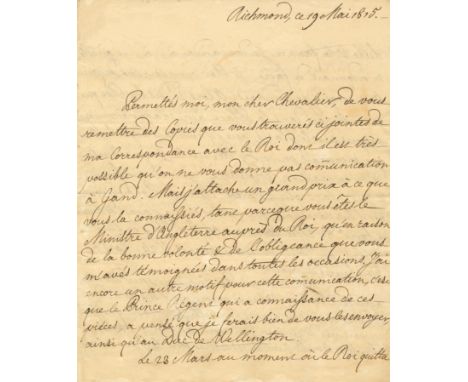 Richmond, ce 19 Mai 1815.
Permettés moi, mon cher Chevalier, de vous
remettre des Copies que vous trouverés ci jointes de
ma Correspondance avec le Roi dont il est très
possible qu'on ne vous donne pas comunication
à Gand. Mais j'attache un grand prix à ce que
vous la connaissiés, tant parceque vous êtes le
Ministre d'Angleterre auprès du Roi, qu'en raison
de la bonne volonté & de l'obligeance que vous
m'avés témoignées dans toutes les occasions. J'ai
encore un autre motif pour cette comunication, c'est
que le Prince Régent qui a connaissance de ces
pièces, a pensé que je ferais bien de vous les envoyer,
ainsi qu'au Duc de Wellington.
Le 23 Mars au moment où le Roi quitta